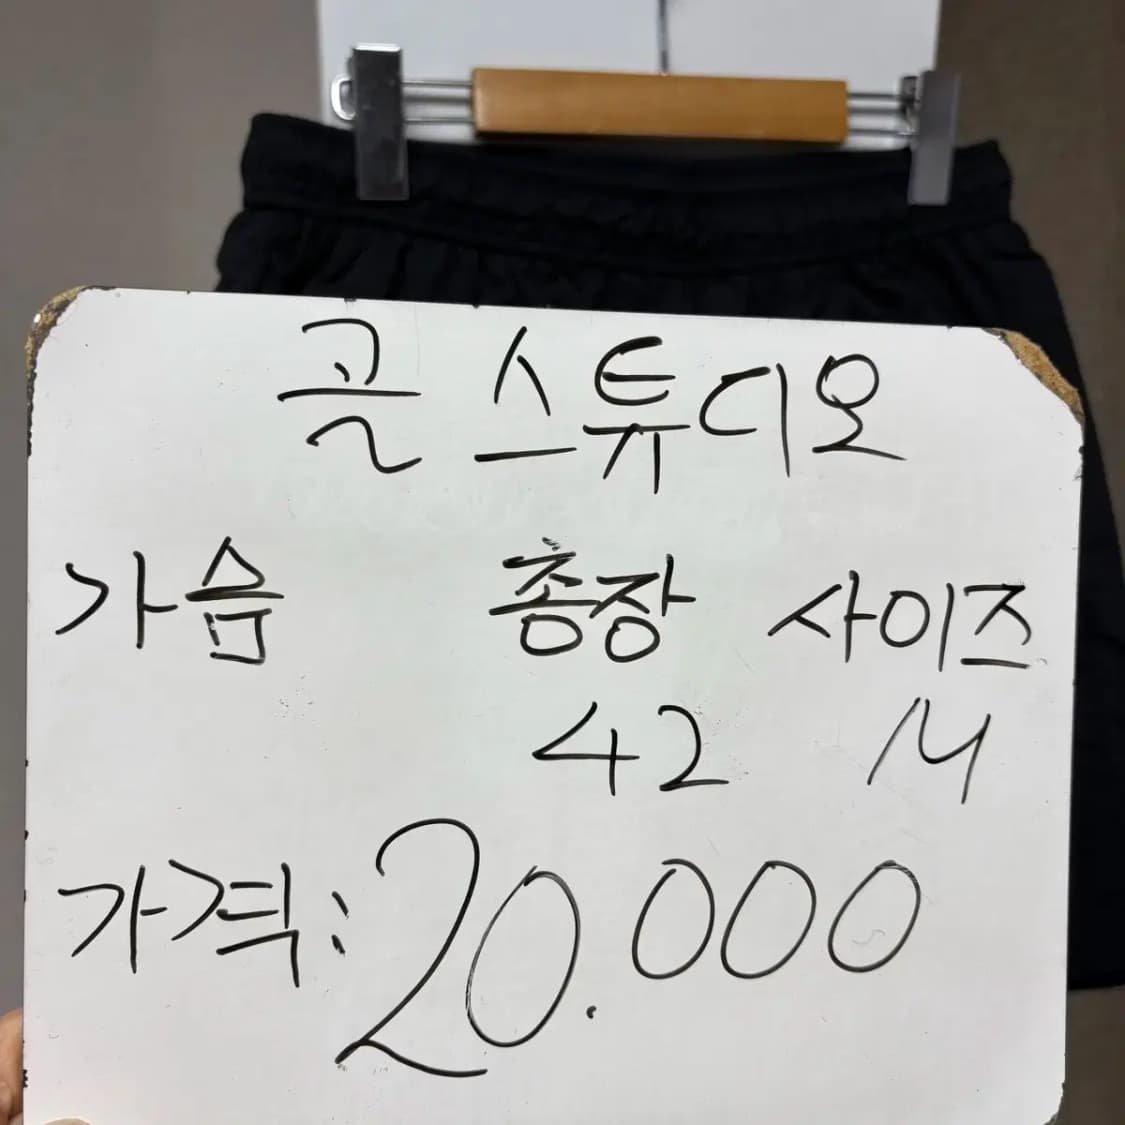 골 스튜디오
가슴 총장 사이즈
42 M
가격: 20.000